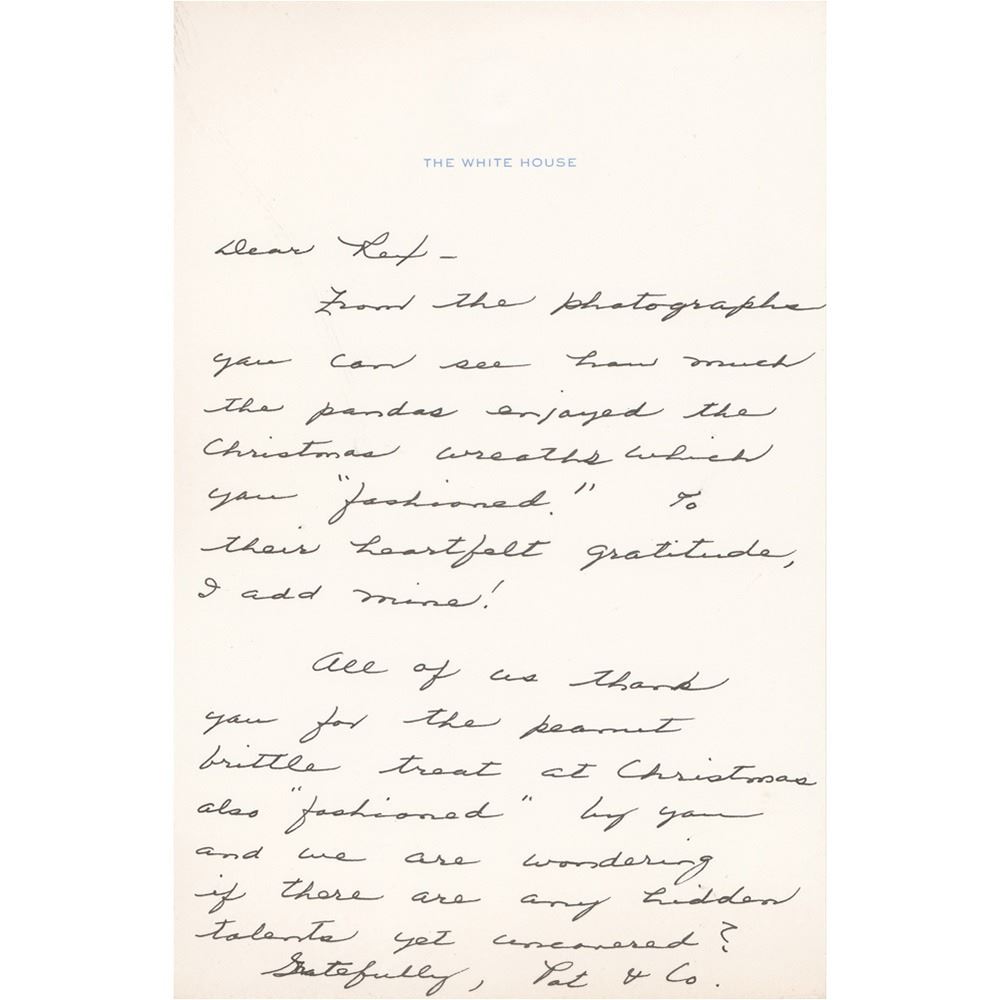 THE WHITE HOUSE
Dear Rex –
From the photographs
you can see how much
the pandas enjoyed the
Christmas wreaths which
you "fashioned." To
their heartfelt gratitude,
I add mine!
All of us thank
you for the peanut
brittle treat at Christmas
also "fashioned" by you
and we are wondering
if there are any hidden
talents yet uncovered?
Gratefully, Pat & Co.